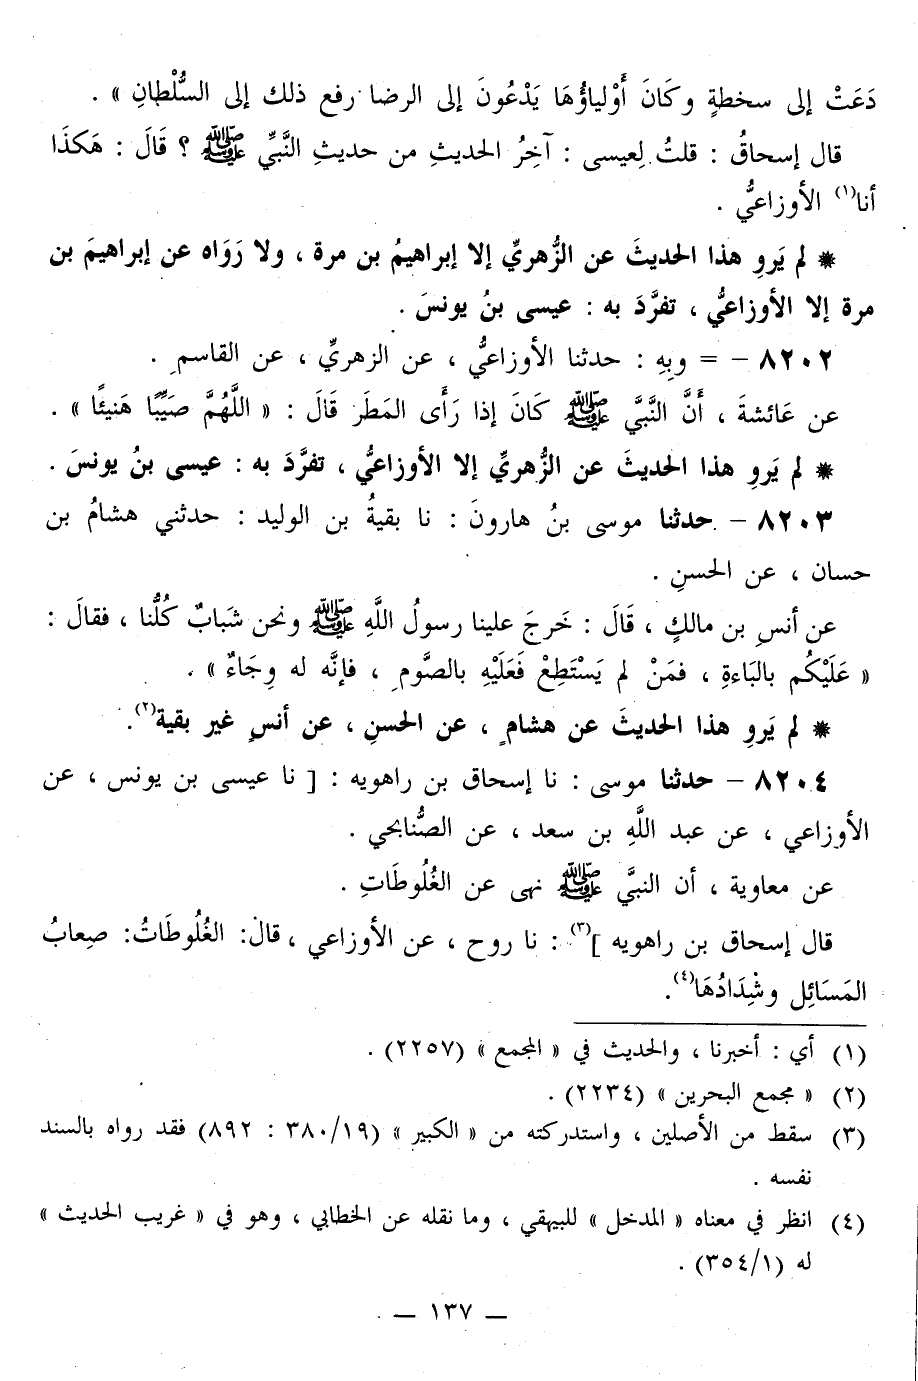 دَعَتْ إلى سخطةٍ وكَانَ أَوْلياؤُهَا يَدْعُونَ إلى الرضا رفع ذلك إلى السُّلْطانِ » .
قال إسحاقُ : قلتُ لِعيسى : آخِرُ الحديثِ من حديثِ النَّبيِّ ﷺ ؟ قَالَ : هَكذَا
أنا(١) الأوزاعيُّ .
* لم يَروِ هذا الحديثَ عن الزُّهريِّ إلا إبراهيمُ بن مرة ، ولا رَوَاه عن إبراهيمَ بن
مرة إلا الأوزاعيُّ ، تفرَّدَ به : عيسى بنُ يونسَ .
٨٢٠٢ - = وبِهِ : حدثنا الأوزاعيُّ ، عن الزهريِّ ، عن القاسمِ .
عن عَائشةَ ، أَنَّ النَّبيَّ ﷺ كَانَ إذا رَأَى المَطَر قَالَ : « اللَّهُمَّ صَيِّبًا هَنيئًا » .
* لم يَروِ هذا الحديثَ عن الزُّهريِّ إلا الأوزاعيُّ ، تفرَّدَ به : عيسى بنُ يونسَ .
٨٢٠٣ - حدثنا موسى بنُ هارونَ : نا بقيةُ بن الوليد : حدثني هشامُ بن
حسان ، عن الحسنِ .
عن أنسِ بن مالكٍ ، قَالَ : خَرجَ علينا رسولُ اللَّهِ ﷺ ونحن شَبابٌ كُلُّنا ، فقالَ :
« عَلَيْكُم بالبَاءةِ ، فمَنْ لم يَسْتَطِعْ فَعَلَيْهِ بالصَّومِ ، فإنَّه له وِجَاءٌ » .
* لم يَروِ هذا الحديثَ عن هشامٍ ، عن الحسنِ ، عن أنسٍ غير بقية(٢).
٨٢٠٤ - حدثنا موسى : نا إسحاق بن راهويه : [ نا عيسى بن يونس ، عن
الأوزاعي ، عن عبد اللَّهِ بن سعد ، عن الصُّنابحي .
عن معاوية ، أن النبيَّ ﷺ نهى عن الغُلُوطَاتِ .
قال إسحاق بن راهويه ](٣) : نا روح ، عن الأوزاعي ، قال: الغُلُوطَاتُ: صِعابُ
المَسَائِل وشْدَادُهَا(٤).
(١) أي : أخبرنا ، والحديث في « المجمع » (٢٢٥٧) .
(٢) « مجمع البحرين » (٢٢٣٤) .
(٣) سقط من الأصلين ، واستدركته من « الكبير » (١٩/ ٣٨٠ : ٨٩٢) فقد رواه بالسند
نفسه .
(٤) انظر في معناه « المدخل » للبيهقي ، وما نقله عن الخطابي ، وهو في « غريب الحديث »
له (١/ ٣٥٤) .
— ١٣٧ —